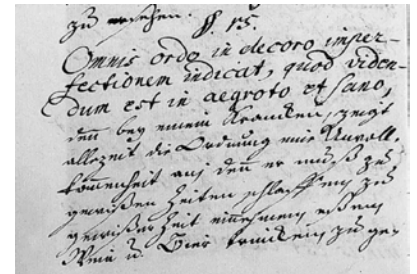 zu ersehen. §. 15
Omnis ordo in decoro imper-
fectionem indicat, quod viden-
dum est in aegroto et sano,
denn bey einem Krancken, zeigt
allezeit die Ordnung eine Unvoll-
kommenheit an, denn er muß zu
gewißen Zeiten schlaffen, zu
gewißer Zeit eßen,
Wein u. Bier trincken, zu ge-